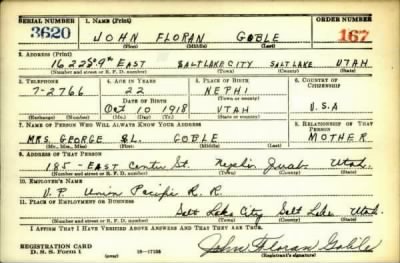 SERIAL NUMBER 1. NAME (Print) ORDER NUMBER
3620 JOHN FLORAN GOBLE 167
(First) (Middle) (Last)
2. ADDRESS (Print)
1622 So 9th EAST SALT LAKE CITY SALT LAKE UTAH
(Number and street or R. F. D. number) (Town) (County) (State)
3. TELEPHONE 4. AGE IN YEARS 5. PLACE OF BIRTH 6. COUNTRY OF CITIZENSHIP
7-2766 22 NEPHI
DATE OF BIRTH (Town or county) U.S.A
Oct 10 1918 UTAH
(Exchange) (Number) (Mo.) (Day) (Yr.) (State or country)
7. NAME OF PERSON WHO WILL ALWAYS KNOW YOUR ADDRESS 8. RELATIONSHIP OF THAT PERSON
MRS. GEORGE GOBLE MOTHER
(Mr., Mrs., Miss) (First) (Middle) (Last)
9. ADDRESS OF THAT PERSON
185 - EAST Center St. Nephi Juab Utah.
(Number and street or R. F. D. number) (Town) (County) (State)
10. EMPLOYER'S NAME
U.P. Union Pacific R.R.
11. PLACE OF EMPLOYMENT OR BUSINESS
Salt Lake City Salt Lake Utah.
(Number and street or R. F. D. number) (Town) (County) (State)
I AFFIRM THAT I HAVE VERIFIED ABOVE ANSWERS AND THAT THEY ARE TRUE.
REGISTRATION CARD
D. S. S. Form 1 (over) 16-17105 John Floran Goble
(Registrant's signature)